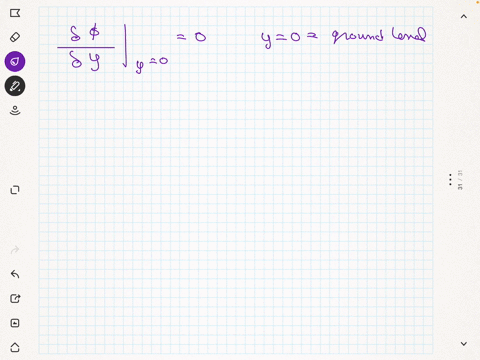 δφ/δy |y=0 = 0 y=0 = ground level
31 / 31